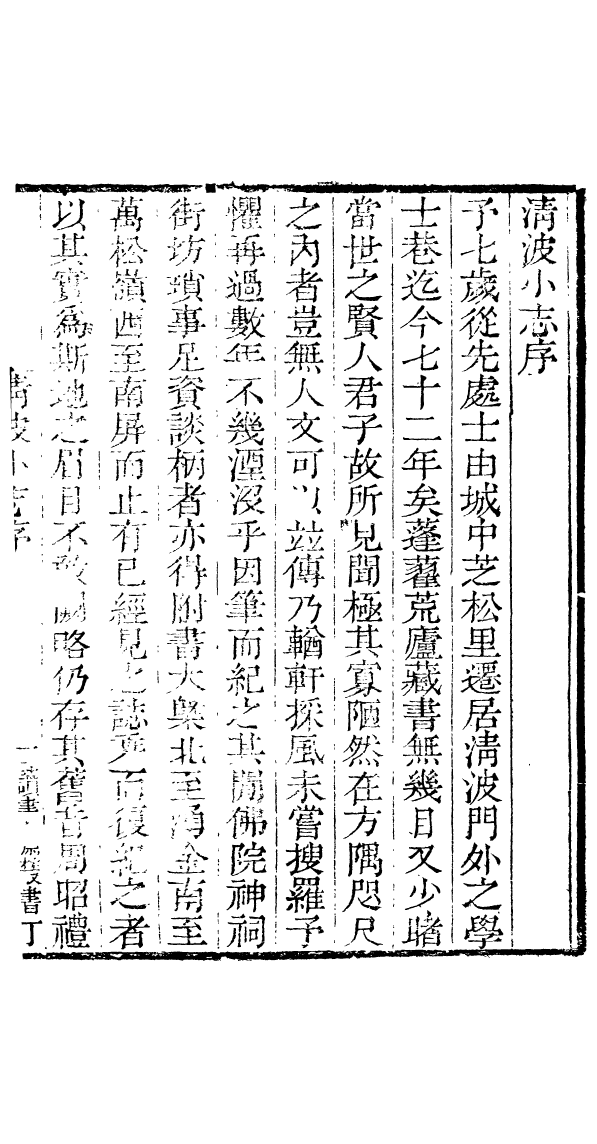 淸波小志序
予七歲從先處士由城中芝松里遷居淸波門外之學
士巷迄今七十二年矣蓬藋荒廬藏書無幾目又少睹
當世之賢人君子故所見聞極其寡陋然在方隅咫尺
之內者豈無人文可以竝傳乃輶軒採風未嘗搜羅予
懼再過數年不幾湮沒乎因筆而紀之其間佛院神祠
街坊瑣事足資談柄者亦得附書大槩北至湧金南至
萬松嶺西至南屏而止有已經見之誌乘而復紀之者
以其實爲斯地之眉目不敢闕略仍存其舊昔周昭禮
淸波小志序 一 讀畫齋叢書丁